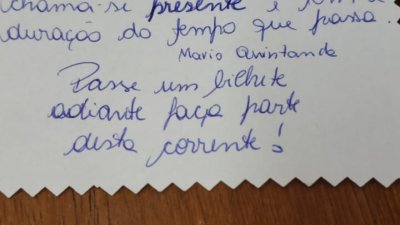 chama-se presente e tem a
duração do tempo que passa.
Mario Quintanda
Passe um bilhete
adiante faça parte
desta corrente!